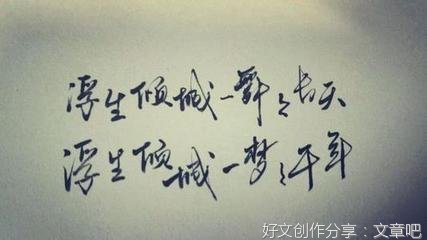 浮生倾城一舞之长天
浮生倾城一梦之千年
好文创作分享：文章吧